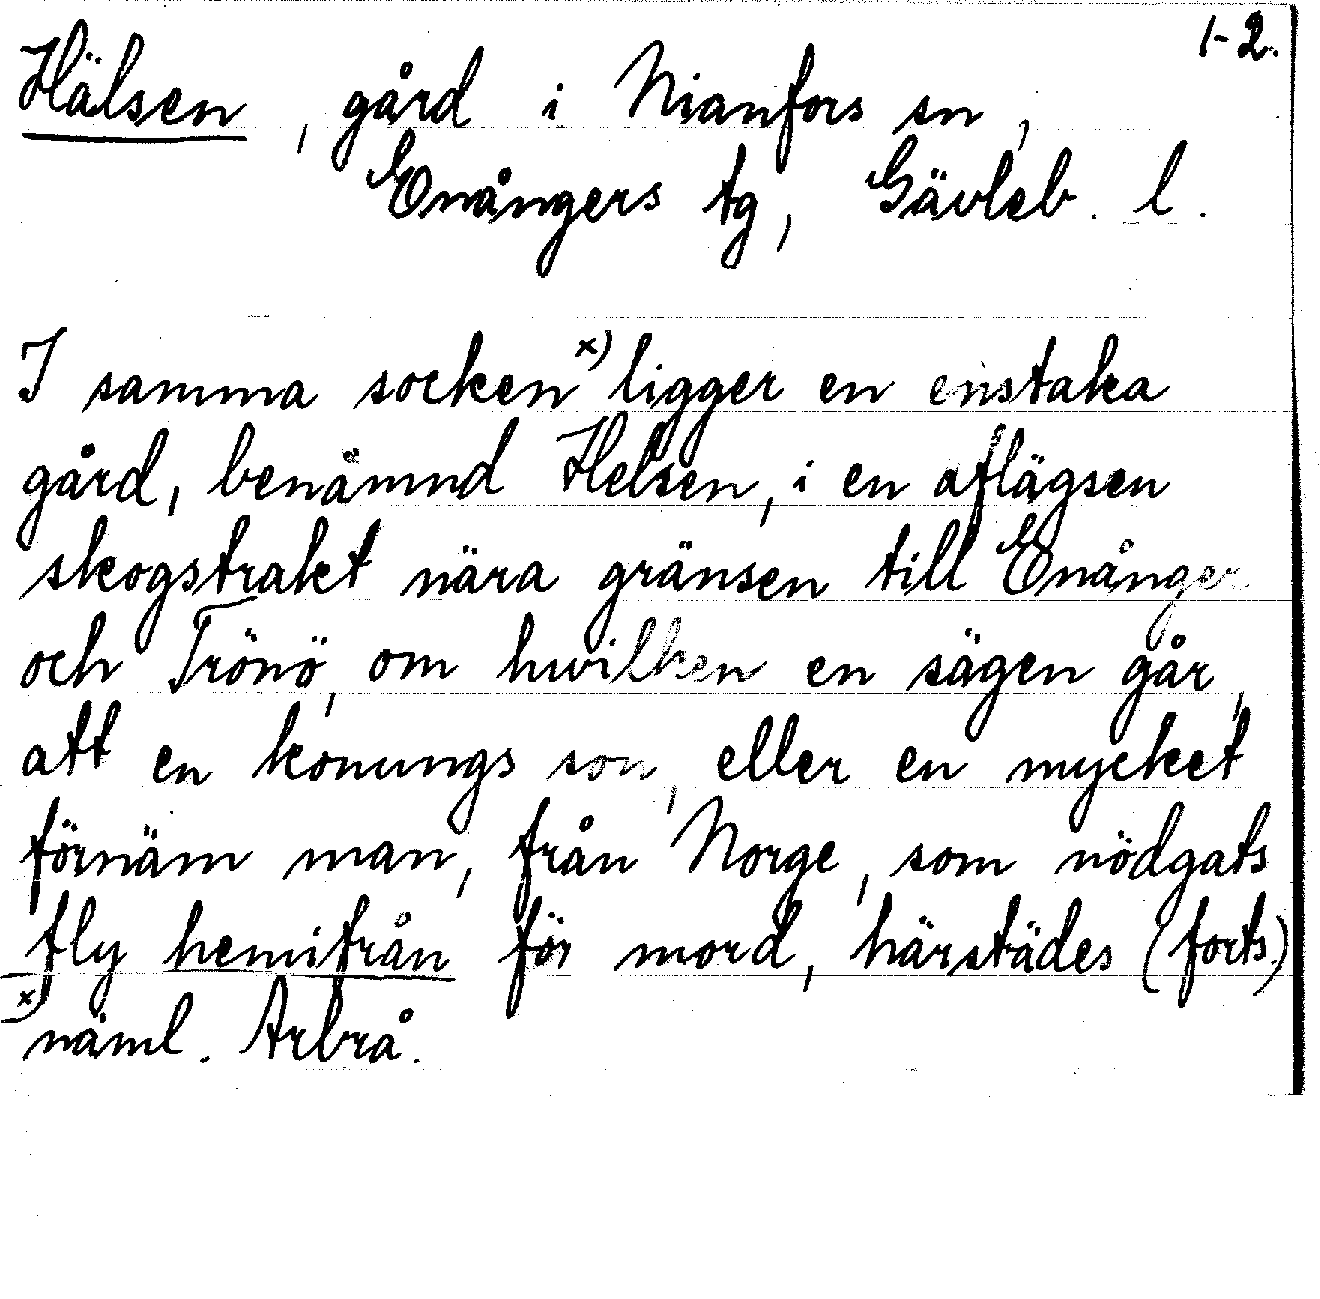 1-2.
Hälsen, gård i Nianfors sn,
Enångers tg, Gävleb. l.
I samma socken x) ligger en enstaka
gård, benämnd Helsen, i en aflägsen
skogstrakt nära gränsen till Enånger
och Trönö, om hvilken en sägen går,
att en konungs son, eller en mycket
förnäm man, från Norge, som nödgats
fly hemifrån för mord, härstädes (forts.)
x) näml. Arbrå.